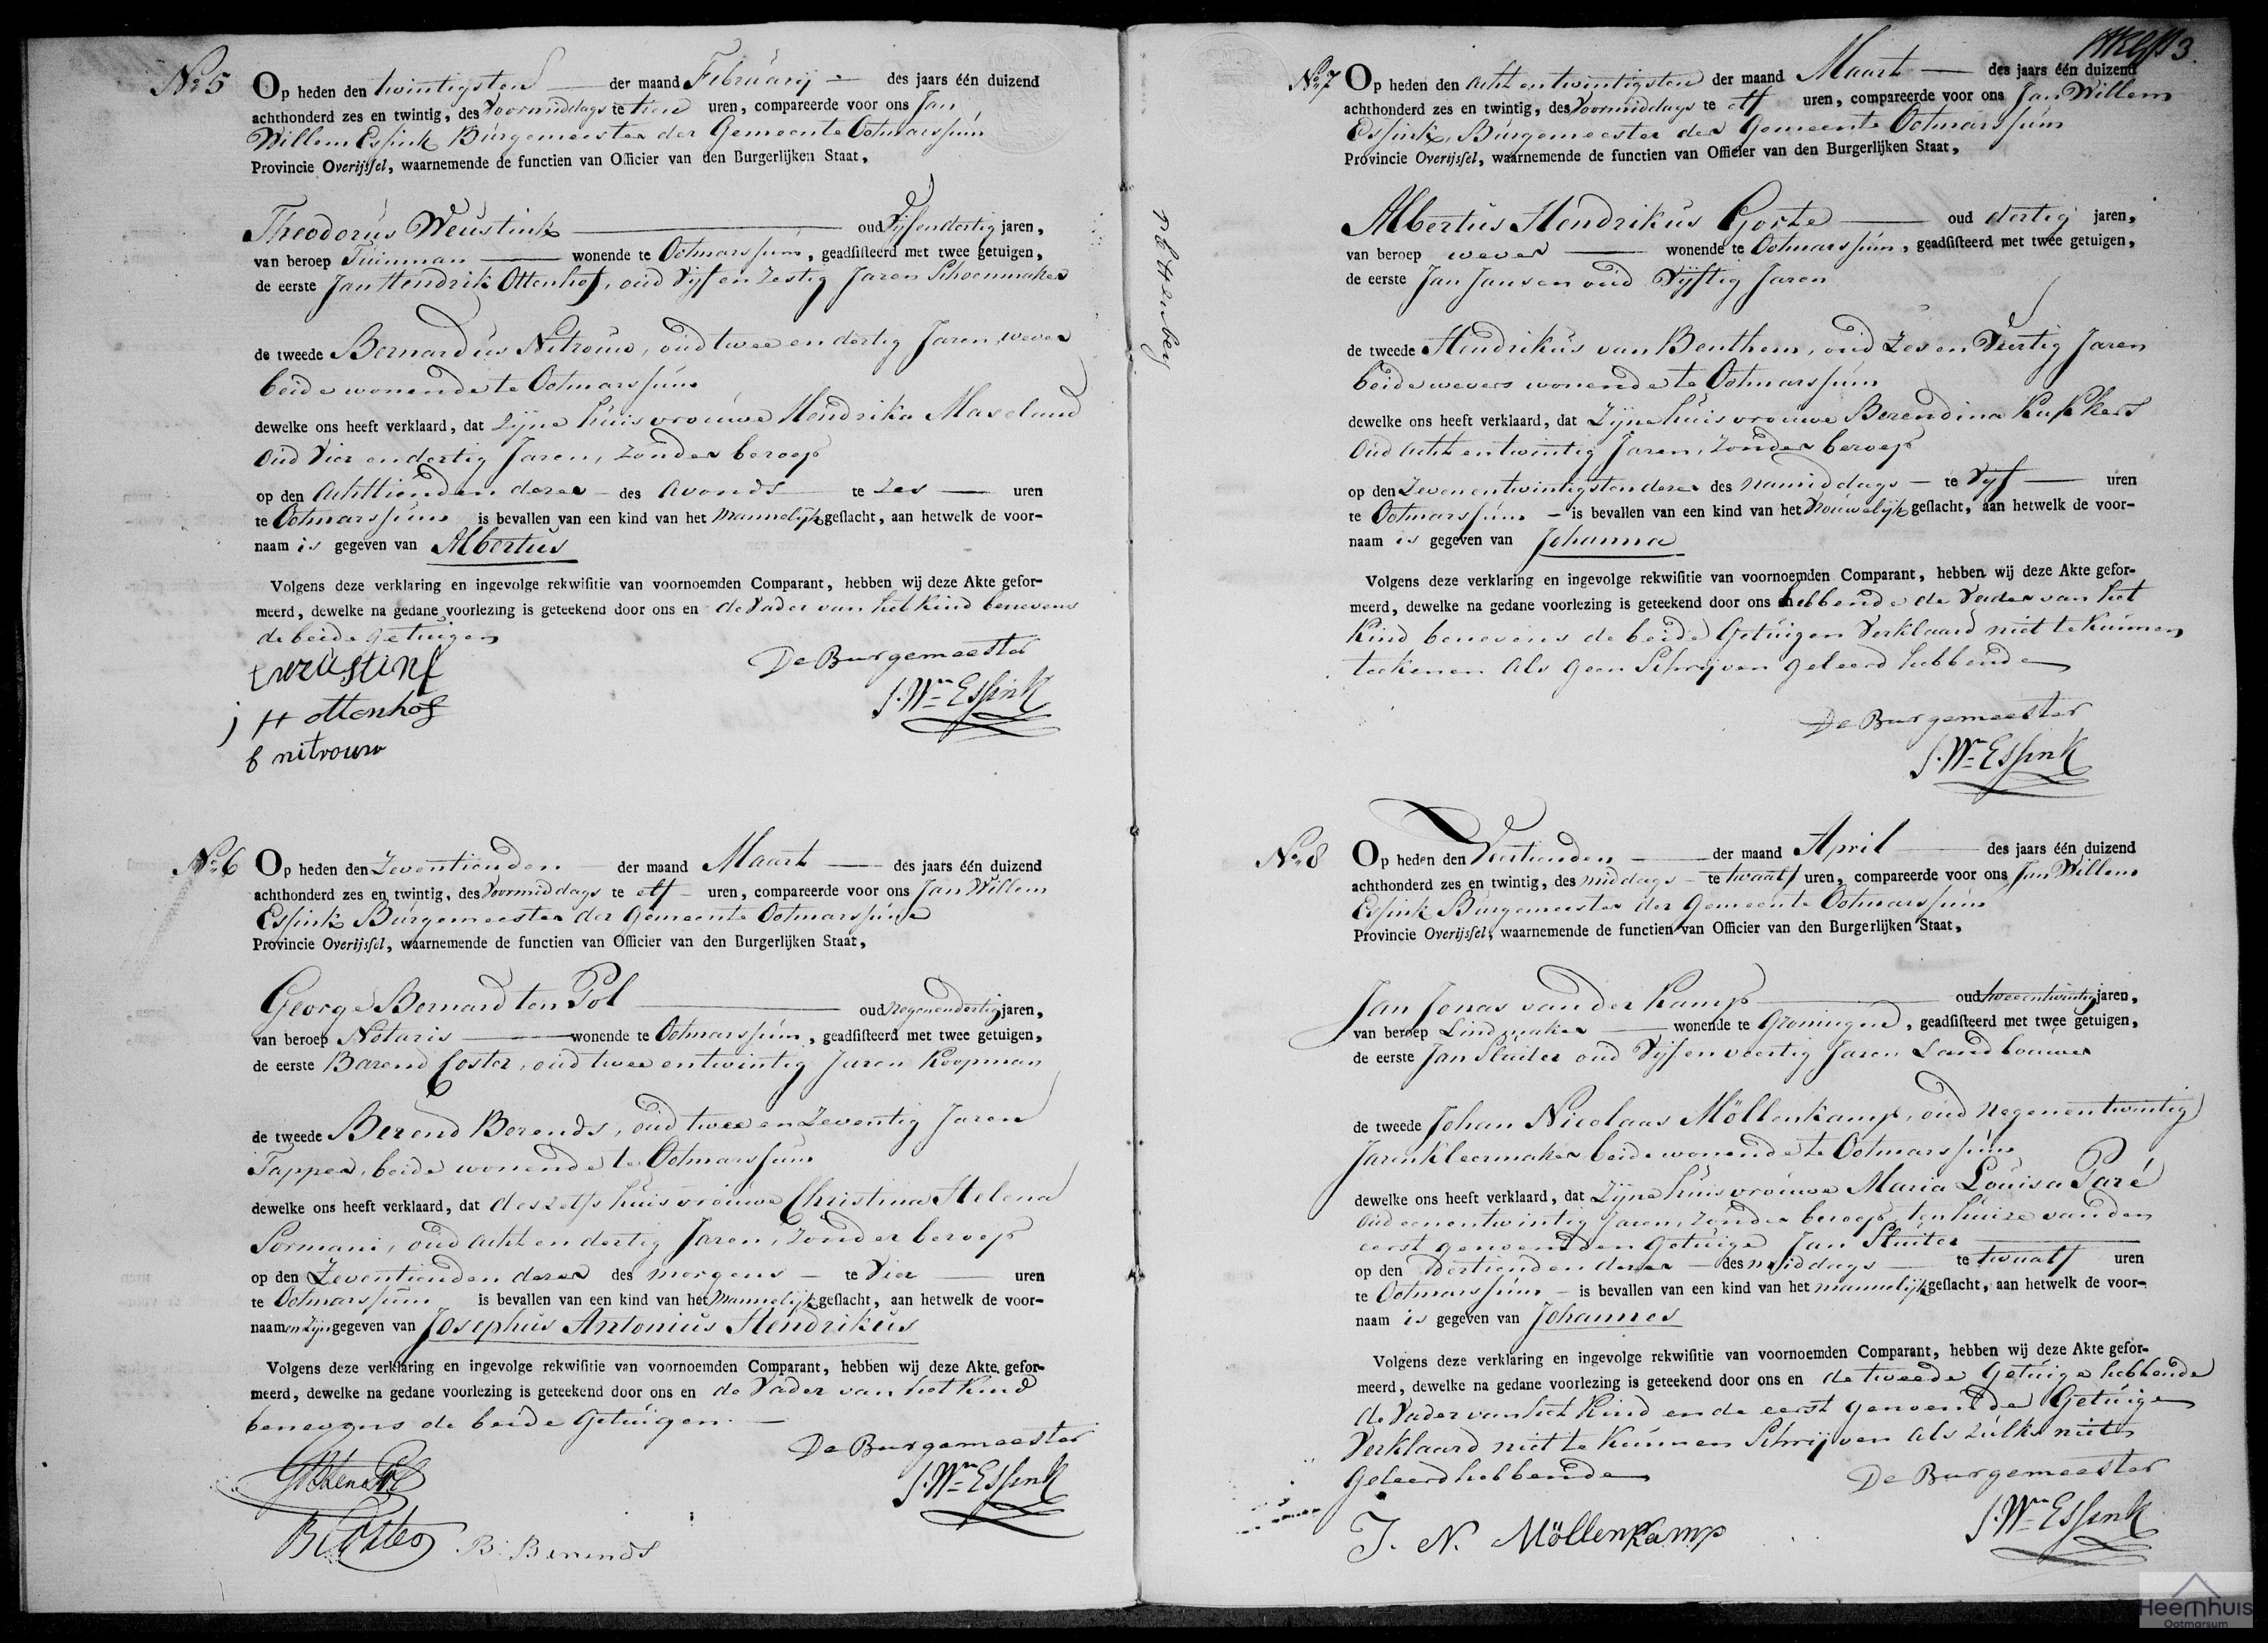 No 5 Op heden den twintigsten der maand Februarij des jaars één duizend
achthonderd zes en twintig, des Voormiddags te tien uren, compareerde voor ons Jan
Willem Essink Burgemeester der Gemeente Ootmarssum
Provincie Overijssel, waarnemende de functien van Officier van den Burgerlijken Staat,
Theodorus Weustink oud Vijf en dertig jaren,
van beroep Tuinman wonende te Ootmarssum, geadsisteerd met twee getuigen,
de eerste Jan Hendrik Ottenhof, oud Vijf en Zestig Jaren Schoenmaker
de tweede Bernardus Nitrouw, oud twee en dertig Jaren, wever
beide wonende te Ootmarssum
dewelke ons heeft verklaard, dat zijne huisvrouwe Hendrika Maseland
oud Vier en dertig Jaren, zonder beroep
op den Achttienden dezer des avonds te Zes uren
te Ootmarssum is bevallen van een kind van het Mannelijk geslacht, aan hetwelk de voor-
naam is gegeven van Albertus
Volgens deze verklaring en ingevolge rekwisitie van voornoemden Comparant, hebben wij deze Akte gefor-
meerd, dewelke na gedane voorlezing is geteekend door ons en de Vader van het Kind benevens
de beide getuigen
t weustink
De Burgemeester
J. Wm Essink
j H ottenhof
b nitrouw
No 6 Op heden den Zeventienden der maand Maart des jaars één duizend
achthonderd zes en twintig, des Voormiddags te elf uren, compareerde voor ons Jan Willem
Essink Burgemeester der Gemeente Ootmarssum
Provincie Overijssel, waarnemende de functien van Officier van den Burgerlijken Staat,
George Bernard ten Pol oud Negenendertig jaren,
van beroep Notaris wonende te Ootmarssum, geadsisteerd met twee getuigen,
de eerste Barend Coster, oud twee en twintig Jaren Koopman
de tweede Berend Berends, oud twee en Zeventig Jaren
Tapper, beide wonende te Ootmarssum
dewelke ons heeft verklaard, dat deszelfs huisvrouwe Christina Helena
Sormani, oud acht en dertig Jaren, Zonder beroep
op den Zeventienden dezer des morgens te Vier uren
te Ootmarssum is bevallen van een kind van het Mannelijk geslacht, aan hetwelk de voor-
naamen zijn gegeven van Josephus Antonius Hendrikus
Volgens deze verklaring en ingevolge rekwisitie van voornoemden Comparant, hebben wij deze Akte gefor-
meerd, dewelke na gedane voorlezing is geteekend door ons en de Vader van het Kind
benevens de beide Getuigen.
De Burgemeester
J. Wm Essink
GB ten Pol
B Coster
B. Berends
3
No 7 Op heden den Acht en twintigsten der maand Maart des jaars één duizend
achthonderd zes en twintig, des Voormiddags te elf uren, compareerde voor ons Jan Willem
Essink, Burgemeester der Gemeente Ootmarssum
Provincie Overijssel, waarnemende de functien van Officier van den Burgerlijken Staat,
Albertus Hendrikus Gorte oud dertig jaren,
van beroep wever wonende te Ootmarssum, geadsisteerd met twee getuigen,
de eerste Jan Jansen oud Vijftig Jaren
de tweede Hendrikus van Benthem, oud Zes en Veertig Jaren
beide wevers wonende te Ootmarssum
dewelke ons heeft verklaard, dat Zijne huisvrouwe Berendina
oud acht en twintig Jaren, Zonder beroep
op den Zeven en twintigsten dezer des namiddags te Vijf uren
te Ootmarssum is bevallen van een kind van het Vrouwelijk geslacht, aan hetwelk de voor-
naam is gegeven van Johanna
Volgens deze verklaring en ingevolge rekwisitie van voornoemden Comparant, hebben wij deze Akte gefor-
meerd, dewelke na gedane voorlezing is geteekend door ons hebbende de Vader van het
Kind benevens de beide Getuigen Verklaard niet te kunnen
teekenen als geen Schrijven geleerd hebbende
De Burgemeester
J. Wm Essink
No 8 Op heden den Veertienden der maand April des jaars één duizend
achthonderd zes en twintig, des middags te twaalf uren, compareerde voor ons Jan Willem
Essink Burgemeester der Gemeente Ootmarssum
Provincie Overijssel, waarnemende de functien van Officier van den Burgerlijken Staat,
Jan Jonas van der Kamp oud tweeentwintig jaren,
van beroep Lindmaker wonende te Groningen, geadsisteerd met twee getuigen,
de eerste Jan Sluiter oud Vijf en veertig Jaren Landbouwer
de tweede Johan Nicolaas Möllenkamp, oud Negenentwintig
Jaren kleermaker beide wonende te Ootmarssum
dewelke ons heeft verklaard, dat Zijne huisvrouwe Maria Louisa Paré
oud eenentwintig Jaren, zonder beroep, ten huize van den
eerst genoemden Getuige Jan Sluiter
op den dertienden dezer des middags te twaalf uren
te Ootmarssum is bevallen van een kind van het mannelijk geslacht, aan hetwelk de voor-
naam is gegeven van Johannes
Volgens deze verklaring en ingevolge rekwisitie van voornoemden Comparant, hebben wij deze Akte gefor-
meerd, dewelke na gedane voorlezing is geteekend door ons en de tweede Getuige hebbende
de Vader van het Kind en de eerst genoemde Getuige
Verklaard niet te kunnen Schrijven als zulks niet
Geleerd hebbende
De Burgemeester
J. Wm Essink
J. N. Möllenkamp
Heemhuis
Ootmarsum